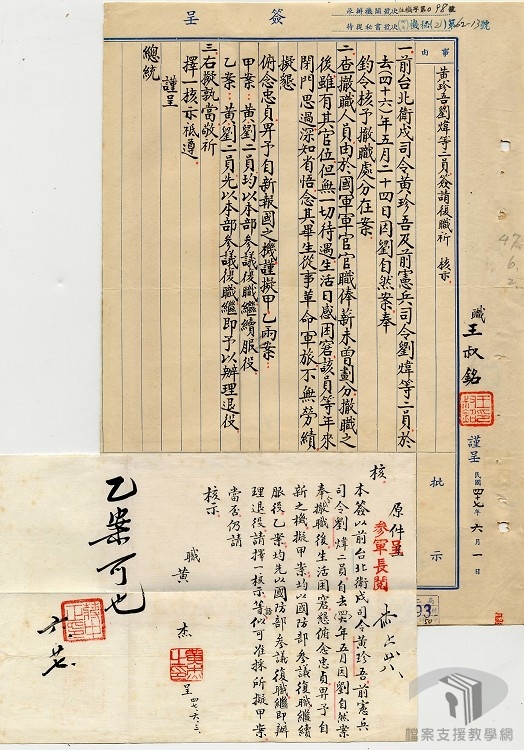 簽呈
事由
黃珍吾劉煒等二員簽請復職祈 核示
一、前台北衛戍司令黃珍吾及前憲兵司令劉煒等二員於
去(四十六)年五月二十四日因劉自然案奉
鈞令核予撤職處分在案。
二、查撤職人員由於國軍軍官官職俸薪未曾劃分撤職之
後雖有其官位但無一切待遇生活日感困窘該員等年來
閉門思過深知省悟念其畢生從事革命軍旅不無勞績
擬懇
俯念忠貞畀予自新報國之機謹擬甲乙兩案:
甲案:黃劉二員均以本部參議復職繼續服役。
乙案:黃劉二員先以本部參議復職繼即予以辦理退役
三、右擬孰當敬祈
擇一核示祗遵
謹呈
總統
職 王叔銘
謹呈 民國四十七年六月一日
批示
原件呈
核。
參軍長閱
本簽以前台北衛戍司令黃珍吾前憲兵
司令劉煒二員自去(四六)年五月因劉自然案
奉令撤職後生活困窘懇俯念忠貞畀予自
新之機擬甲案均以國防部參議復職繼續
服役乙案均先以國防部參議復職繼即辦
理退役請擇一核示等語似可准採所擬甲案
當否仍請
核示。
職 黃杰
呈 四七、六、三、
乙案可也
檔案支援教學網